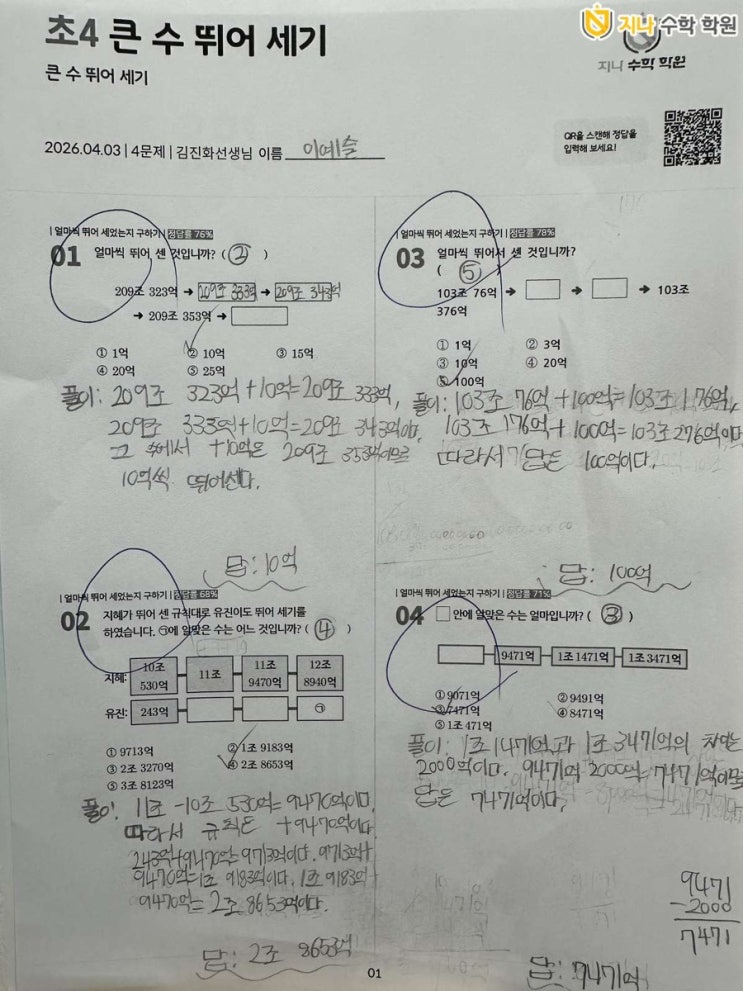 지나 수학 학원
초4 큰 수 뛰어 세기
지나 수학 학원
큰 수 뛰어 세기
QR을 스캔해 정답을
입력해 보세요!
2026.04.03 | 4문제 | 김진화선생님 이름 이예슬
| 얼마씩 뛰어 세었는지 구하기 | 정답률 75%
01 얼마씩 뛰어 센 것입니까? ( ② )
209조 323억 → 209조 333억 → 209조 343억
→ 209조 353억 →
① 1억 ② 10억 ③ 15억
④ 20억 ⑤ 25억
풀이: 209조 323억+10억=209조 333억,
209조 333억+10억=209조 343억이다.
그 후에서 +10억은 209조 353억이므로
10억씩 뛰어센다.
답: 10억
| 얼마씩 뛰어 세었는지 구하기 | 정답률 68%
02 지혜가 뛰어 센 규칙대로 유진이도 뛰어 세기를
하였습니다. ㉠에 알맞은 수는 어느 것입니까? ( ④ )
지혜: 10조 530억 11조 11조 9470억 12조 8940억
유진: 243억 ㉠
① 9713억 ② 1조 9183억
③ 2조 3270억 ④ 2조 8653억
⑤ 3조 8123억
풀이: 11조-10조 530억=9470억이다.
따라서 규칙은 +9470억이다.
243억+9470억=9713억이다. 9713억+
9470억=1조 9183억이다. 1조 9183억+
9470억는 2조 8653억이다.
답: 2조 8653억
| 얼마씩 뛰어 세었는지 구하기 | 정답률 78%
03 얼마씩 뛰어서 센 것입니까?
( ⑤ )
103조 76억 → → → 103조
376억
① 1억 ② 3억
③ 10억 ④ 20억
⑤ 100억
풀이: 103조 76억+100억=103조 176억,
103조 176억+100억=103조 276억이다.
따라서 답은 100억이다.
답: 100억
| 얼마씩 뛰어 세었는지 구하기 | 정답률 71%
04 □안에 알맞은 수는 얼마입니까? ( ③ )
9471억 1조 1471억 1조 3471억
① 9071억 ② 9491억
③ 7471억 ④ 8471억
⑤ 1조 471억
풀이: 1조 1471억과 1조 3471억의 차이는
2000억이다. 9471억-2000억=7471억이므로
답은 7471억이다.
9471
-2000
7471
답: 7471억
01